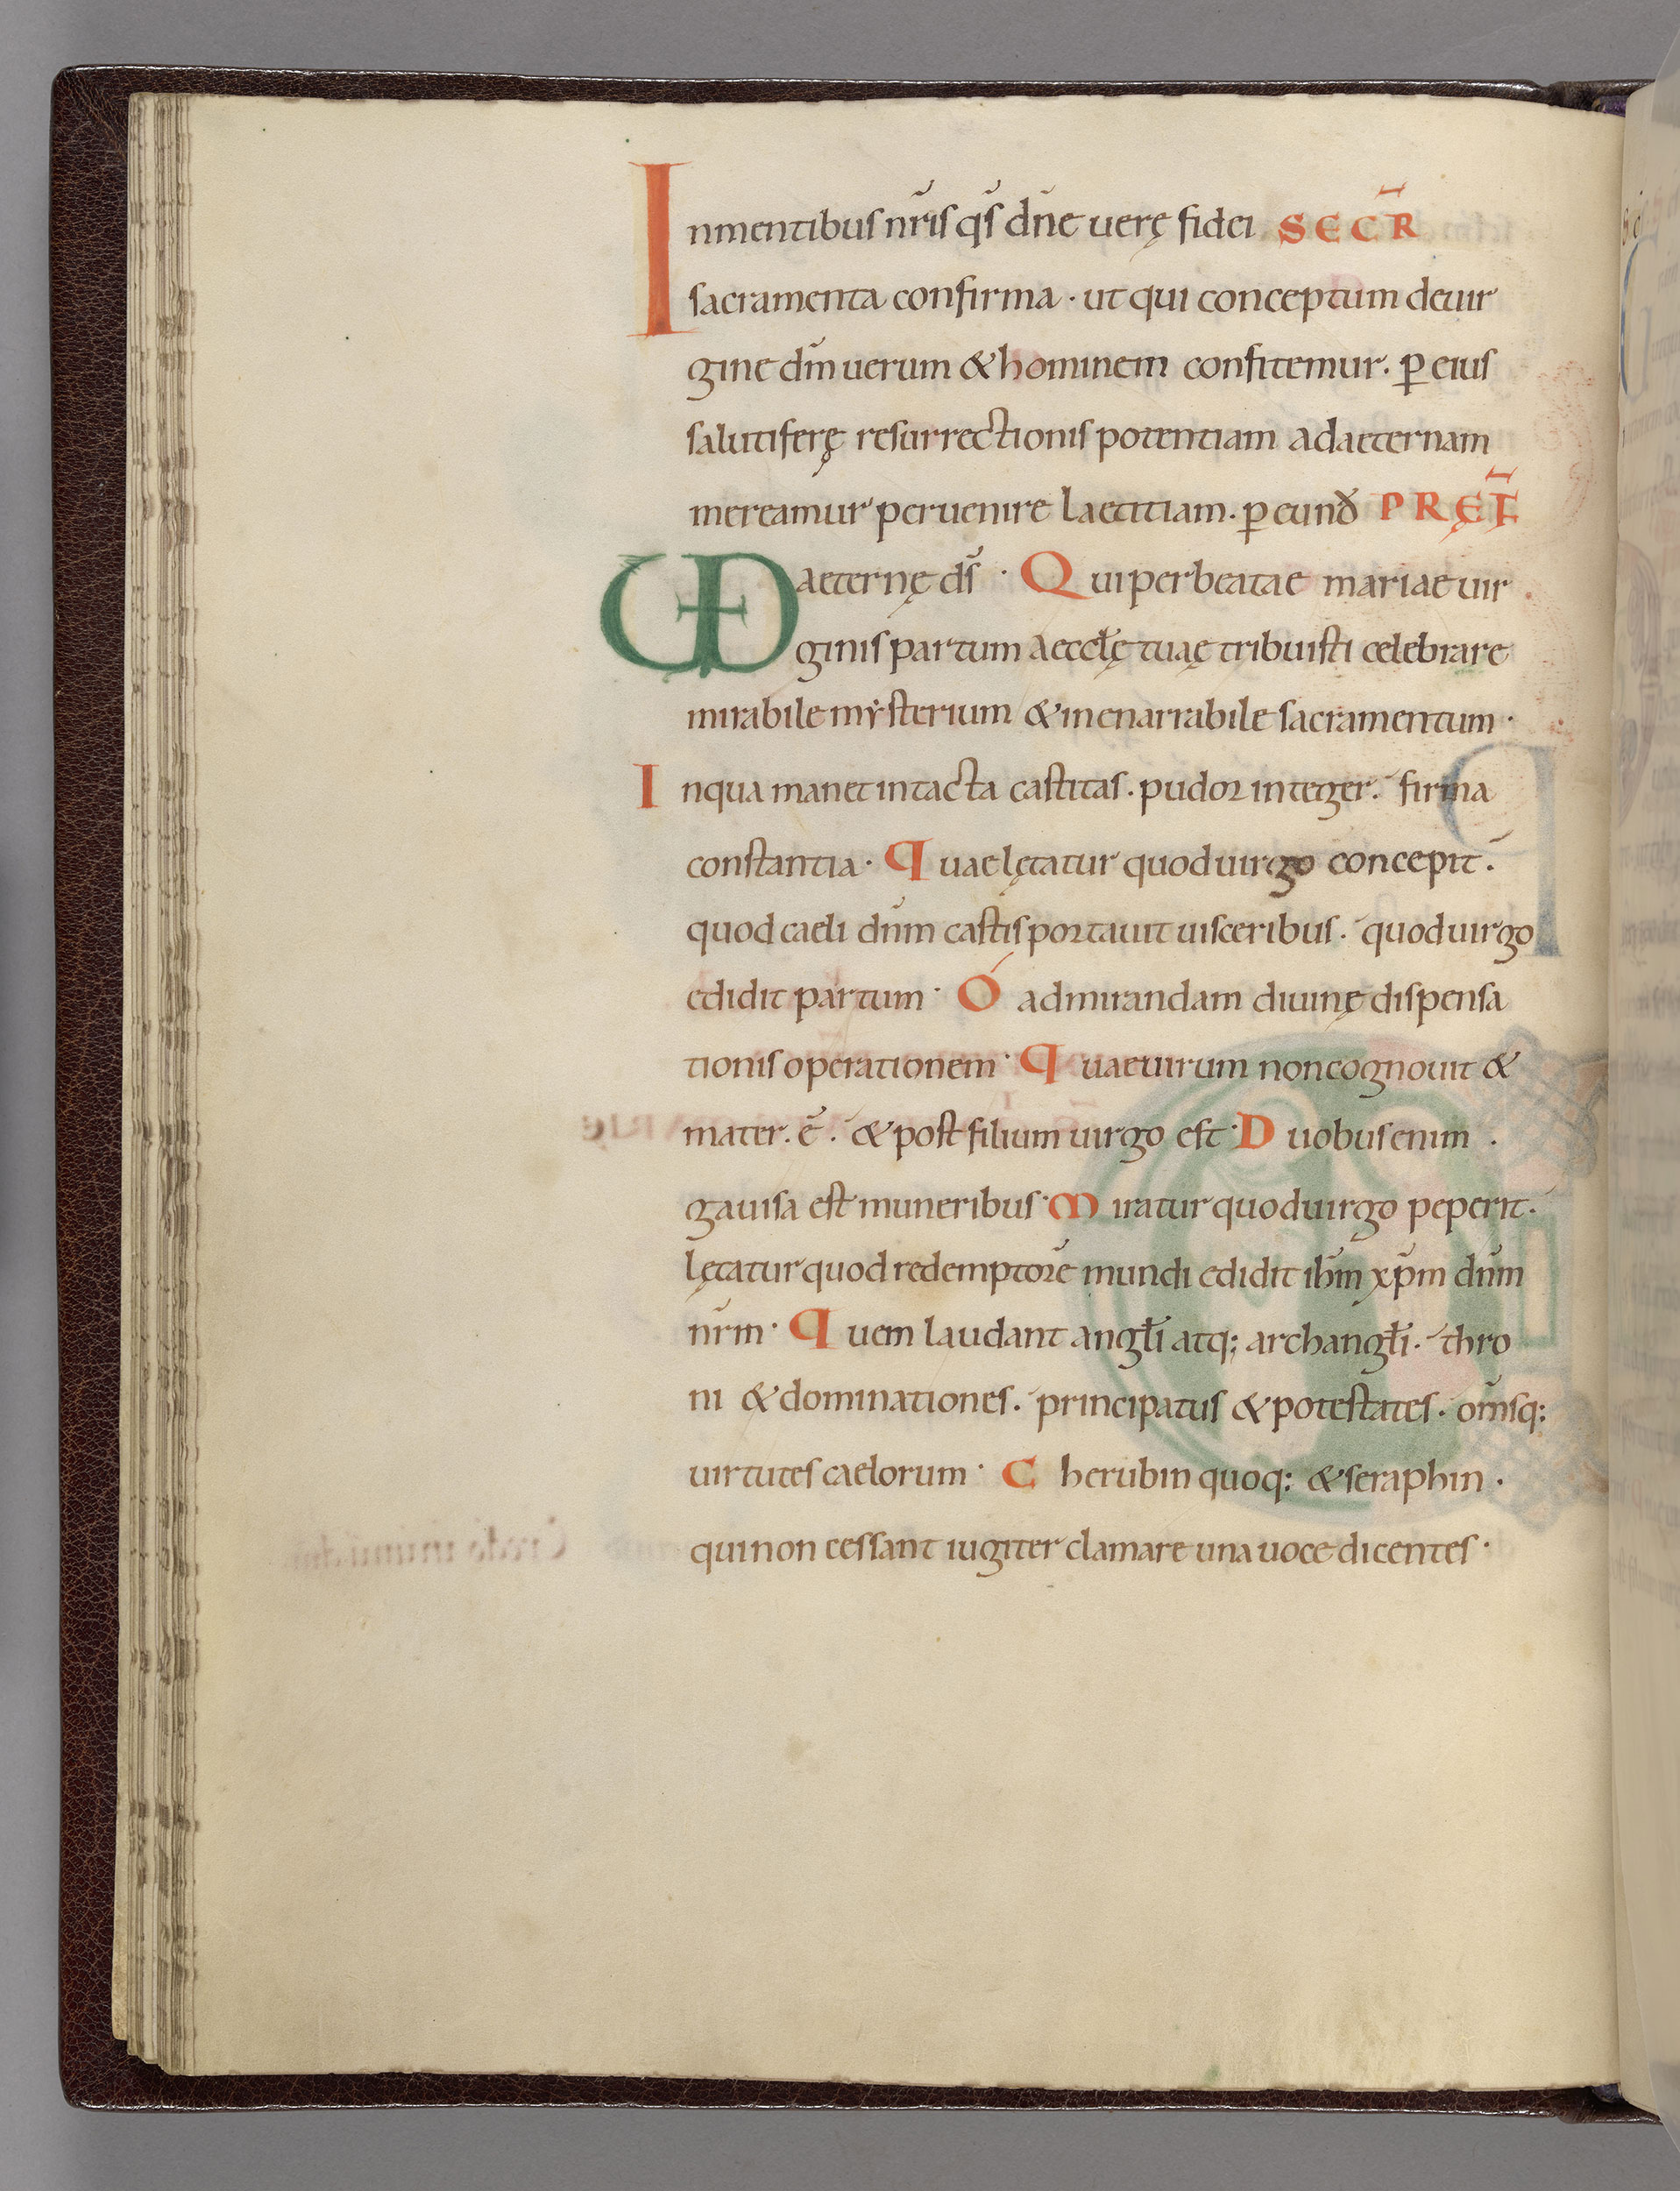 Inmentibus nr̄is qs̄ dn̄e uerę fidei SECR̄
sacramenta confirma · ut qui conceptum deuir
gine dm̄ uerum & hominem confitemur. ꝑ eius
salutiferę resurrectionis potentiam adaeternam
mereamur peruenire laetitiam. ꝑ eund̄ PRĘF̄
VD aeternę ds̄ · Qui per beatae mariae uir
ginis partum aecctę tuaę tribuisti celebrare
mirabile mẏsterium & inenarrabile sacramentum ·
Inqua manet intacta castitas. pudor integer. firma
constantia · Quae lętatur quod uirgo concepit.
quod caeli dn̄m castis portauit uisceribus. quod uirgo
edidit partum · Ó admirandam diuinę dispensa
tionis operationem · Quae uirum non cognouit &
mater. ē. & post filium uirgo est · Duobus enim .
gauisa est muneribus · Miratur quod uirgo peperit.
lętatur quod redemptorē mundi edidit ihm̄ xp̄m dn̄m
nr̄m · Quem laudant angłi atq; archangłi. thro
ni & dominationes. principatus & potestates. om̄sq;
uirtutes caelorum · Cherubin quoq; & seraphin .
qui non cessant iugiter clamare una uoce dicentes ·